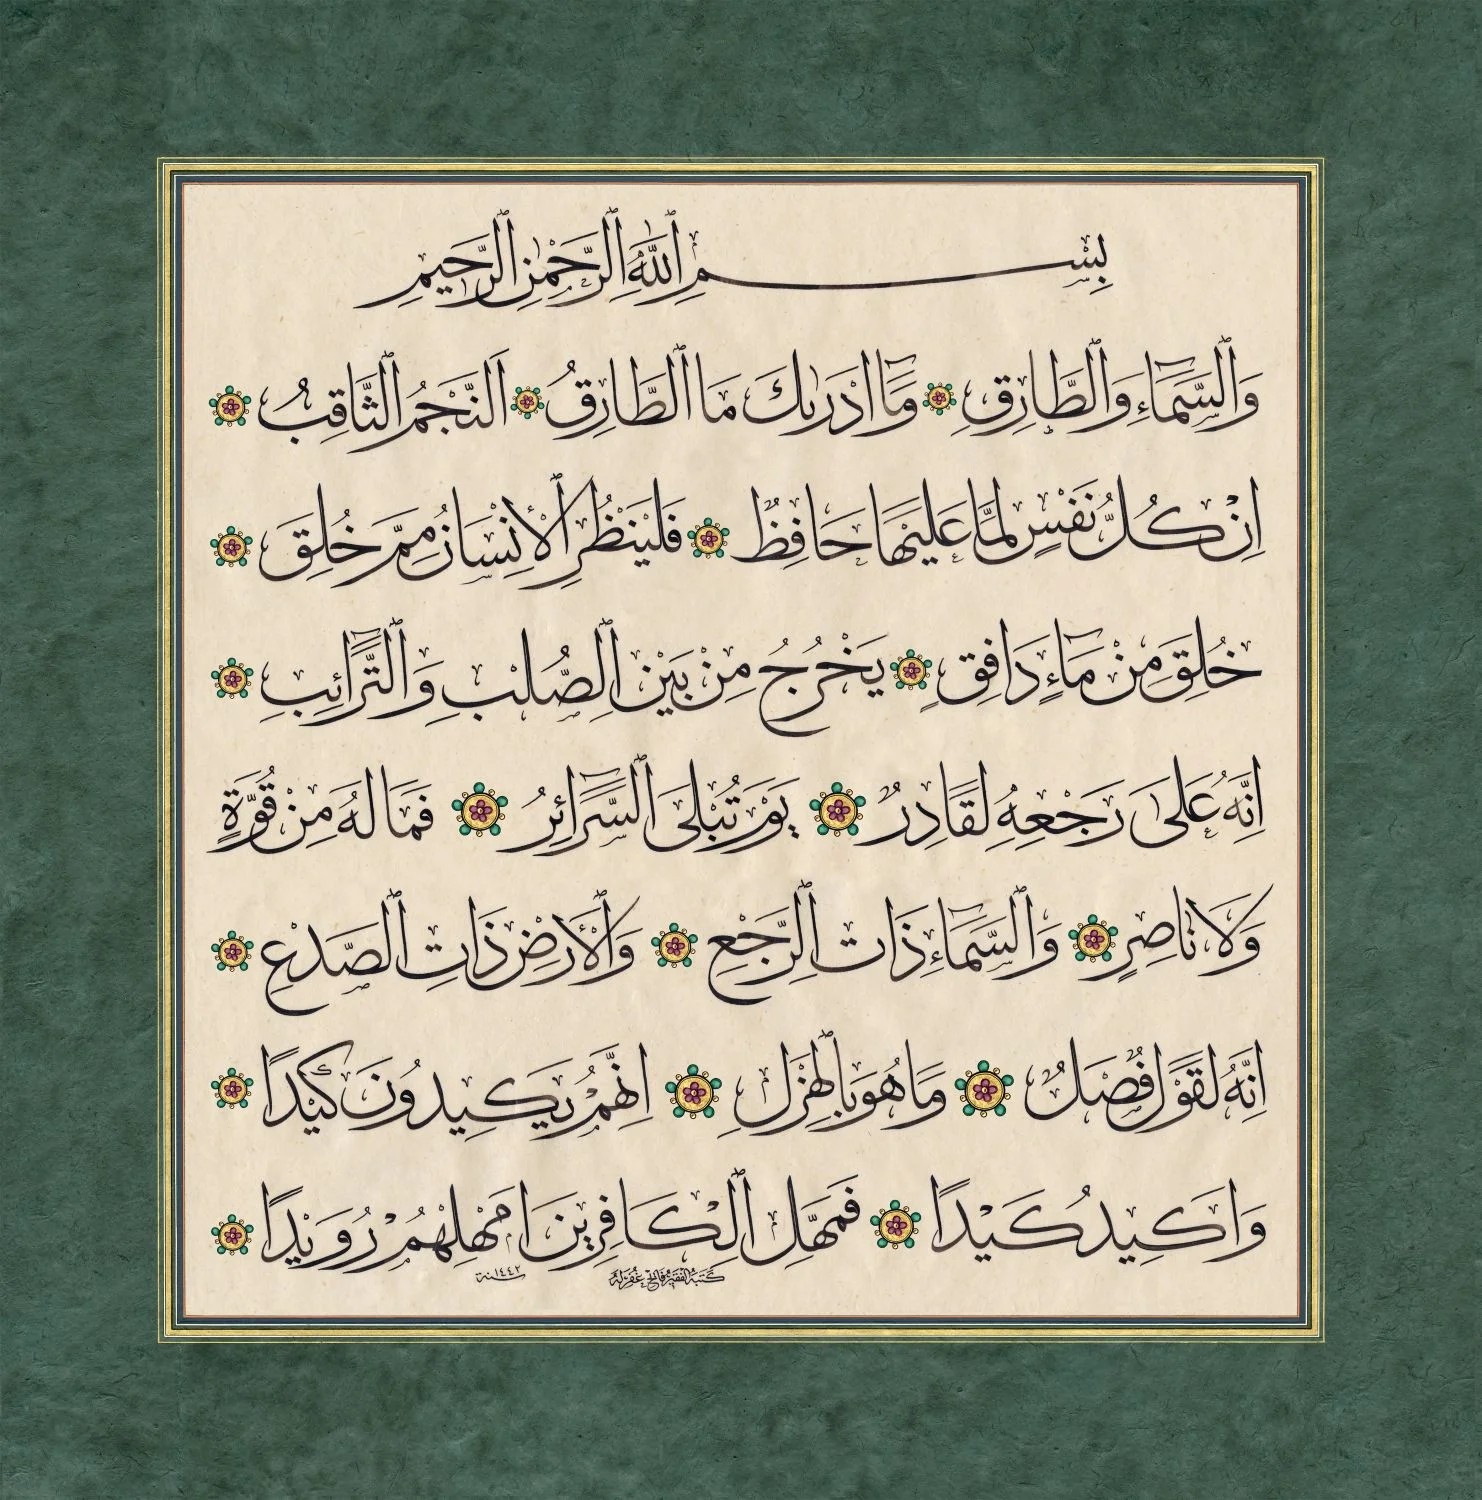 بِسْمِ ٱللّٰهِ ٱلرَّحْمٰنِ ٱلرَّحِيمِ
وَٱلسَّمَٓاءِ وَٱلطَّارِقِ وَمَٓا اَدْرٰيكَ مَا ٱلطَّارِقُ اَلنَّجْمُ ٱلثَّاقِبُ
اِنْ كُلُّ نَفْسٍ لَمَّا عَلَيْهَا حَافِظٌ فَلْيَنْظُرِ ٱلْاِنْسَانُ مِمَّ خُلِقَ
خُلِقَ مِنْ مَٓاءٍ دَافِقٍ يَخْرُجُ مِنْ بَيْنِ ٱلصُّلْبِ وَٱلتَّرَٓائِبِ
اِنَّهُ عَلٰى رَجْعِهِ لَقَادِرٌ يَوْمَ تُبْلَى ٱلسَّرَٓائِرُ فَمَا لَهُ مِنْ قُوَّةٍ
وَلَا نَاصِرٍ وَٱلسَّمَٓاءِ ذَاتِ ٱلرَّجْعِ وَٱلْاَرْضِ ذَاتِ ٱلصَّدْعِ
اِنَّهُ لَقَوْلٌ فَصْلٌ وَمَا هُوَ بِٱلْهَزْلِ اِنَّهُمْ يَكِيدُونَ كَيْدًا
وَاَكِيدُ كَيْدًا فَمَهِّلِ ٱلْكَافِرِينَ اَمْهِلْهُمْ رُوَيْدًا
كَتَبَهُ ٱلْفَقِيرُ فَاتِح غُفِرَ لَهُ سنة ١٤٤٢